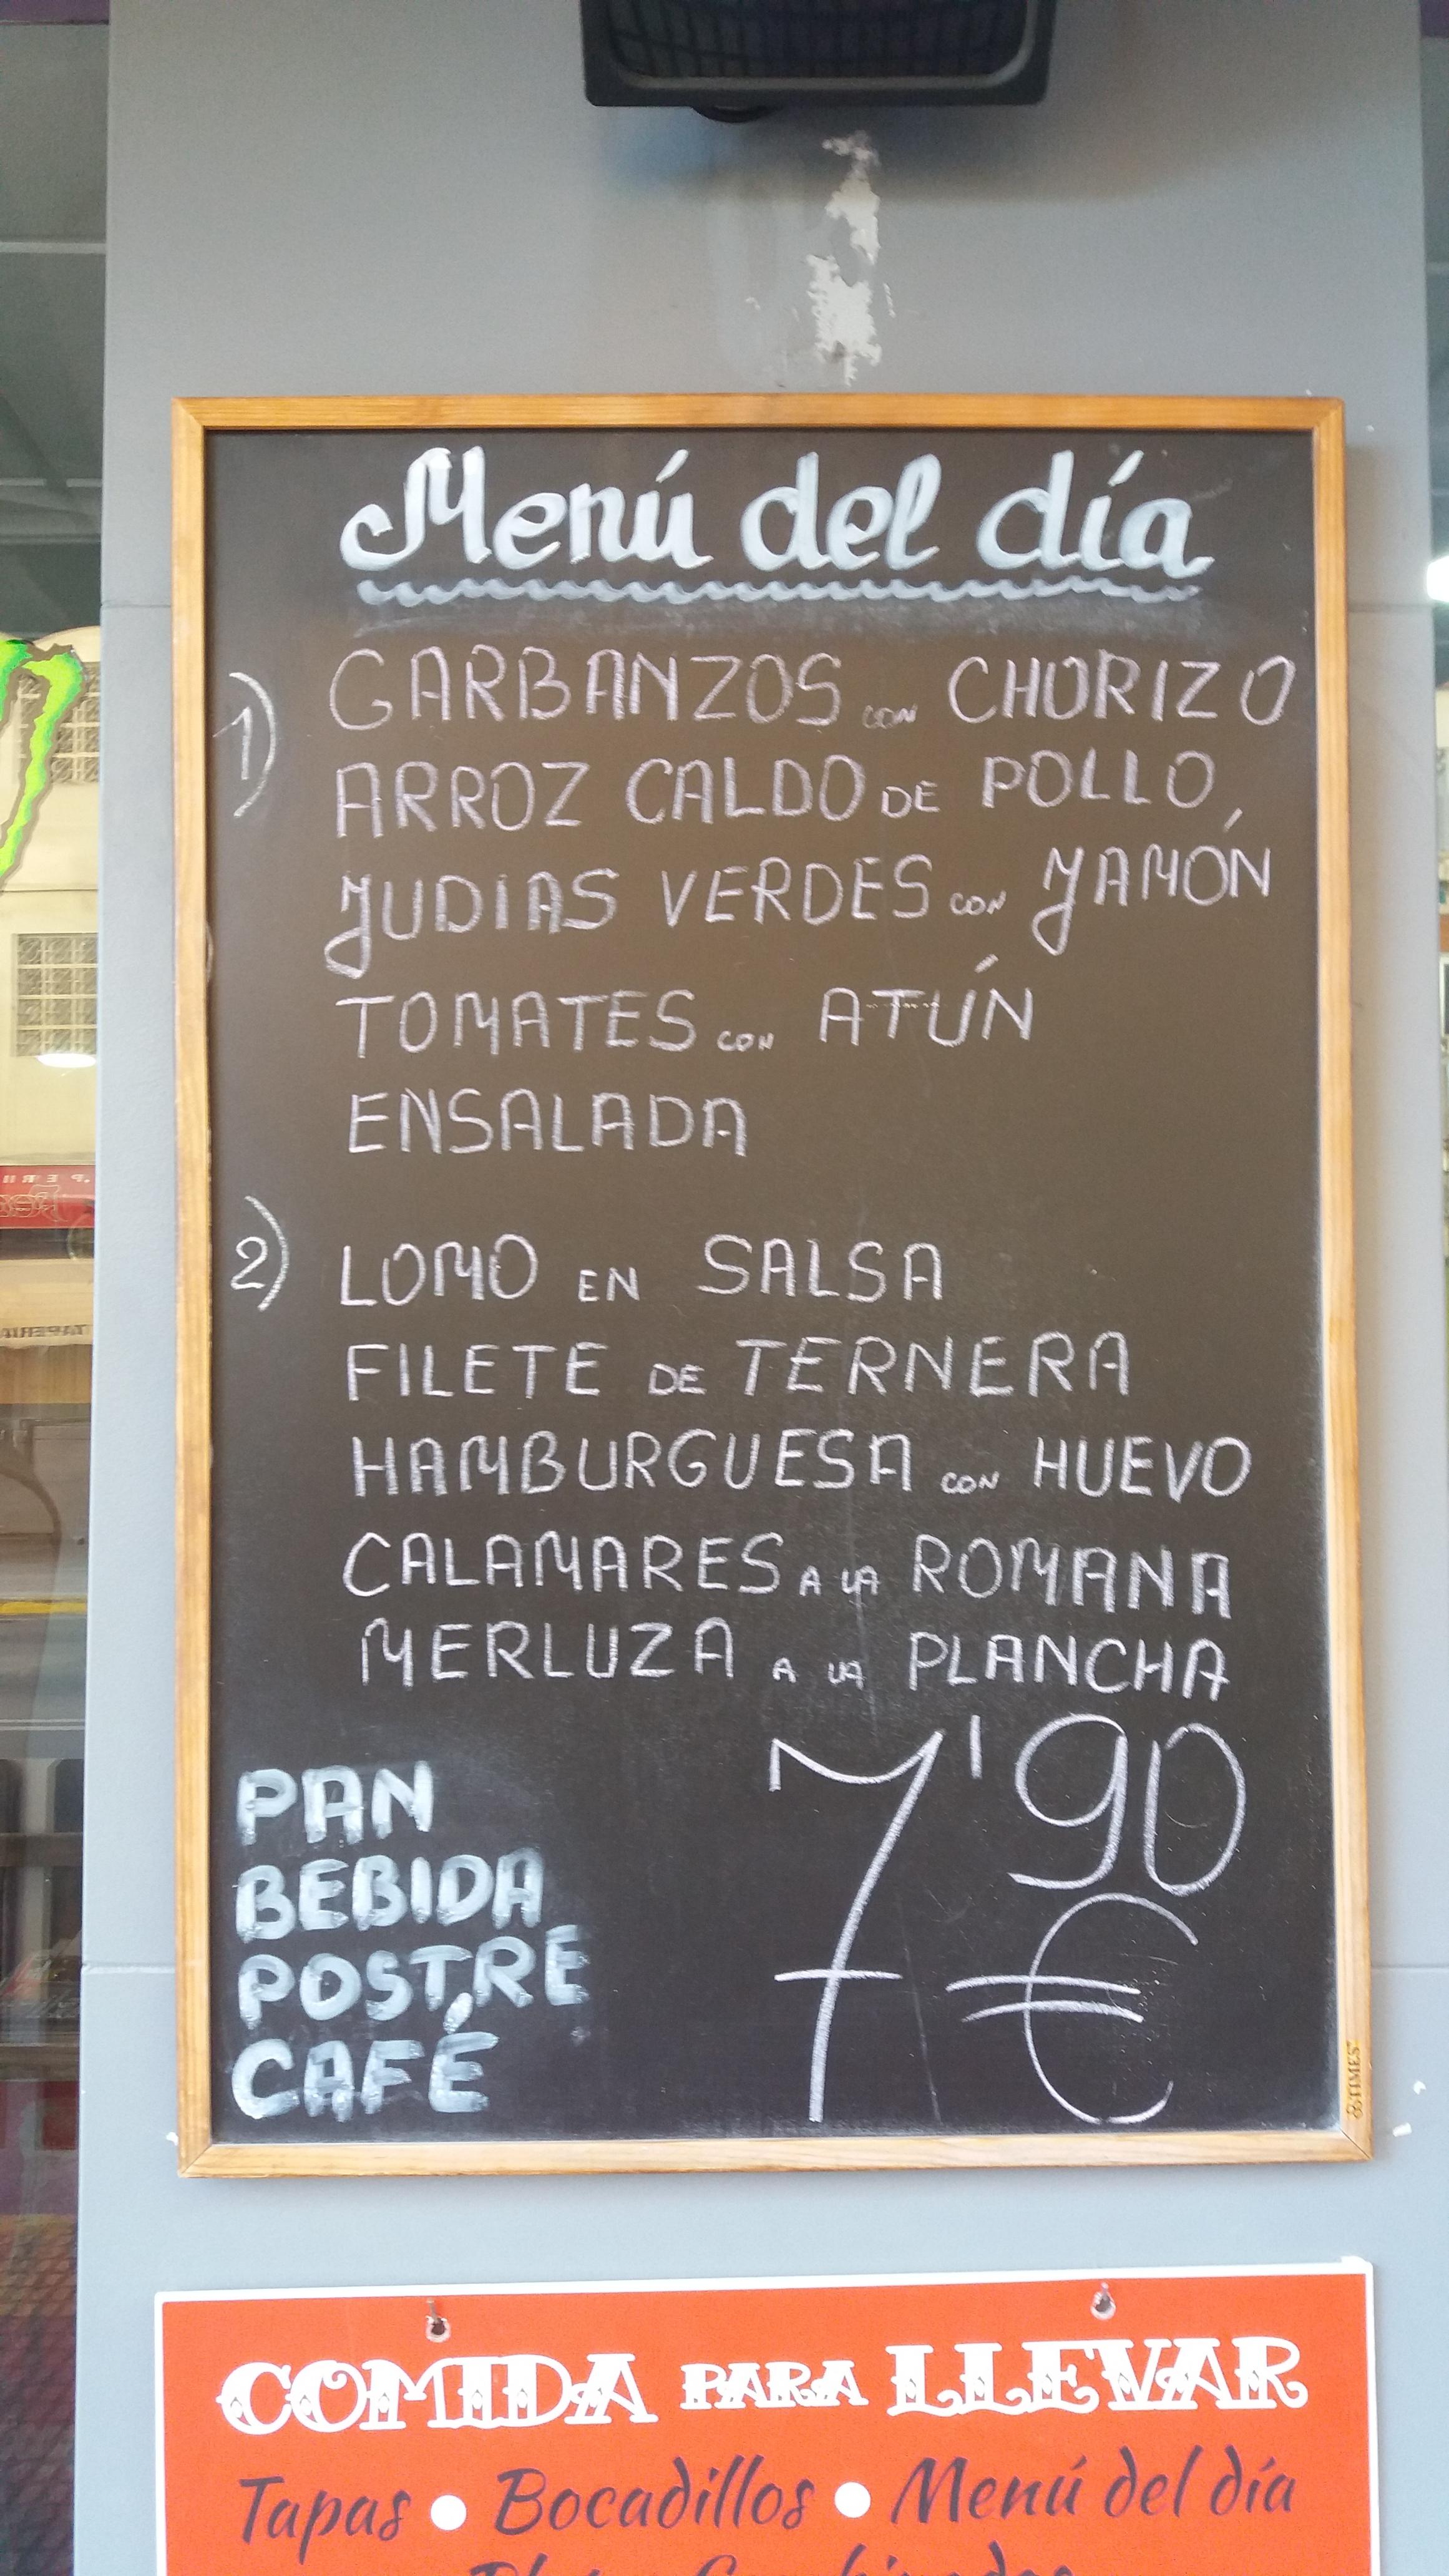 Menú del día
1) GARBANZOS CON CHORIZO
ARROZ CALDO DE POLLO
JUDIAS VERDES CON JAMÓN
TOMATES CON ATÚN
ENSALADA
2) LOMO EN SALSA
FILETE DE TERNERA
HAMBURGUESA CON HUEVO
CALAMARES A LA ROMANA
MERLUZA A LA PLANCHA
PAN
BEBIDA
POSTRE
CAFÉ
7'90
€
TIMES
COMIDA PARA LLEVAR
Tapas • Bocadillos • Menú del día